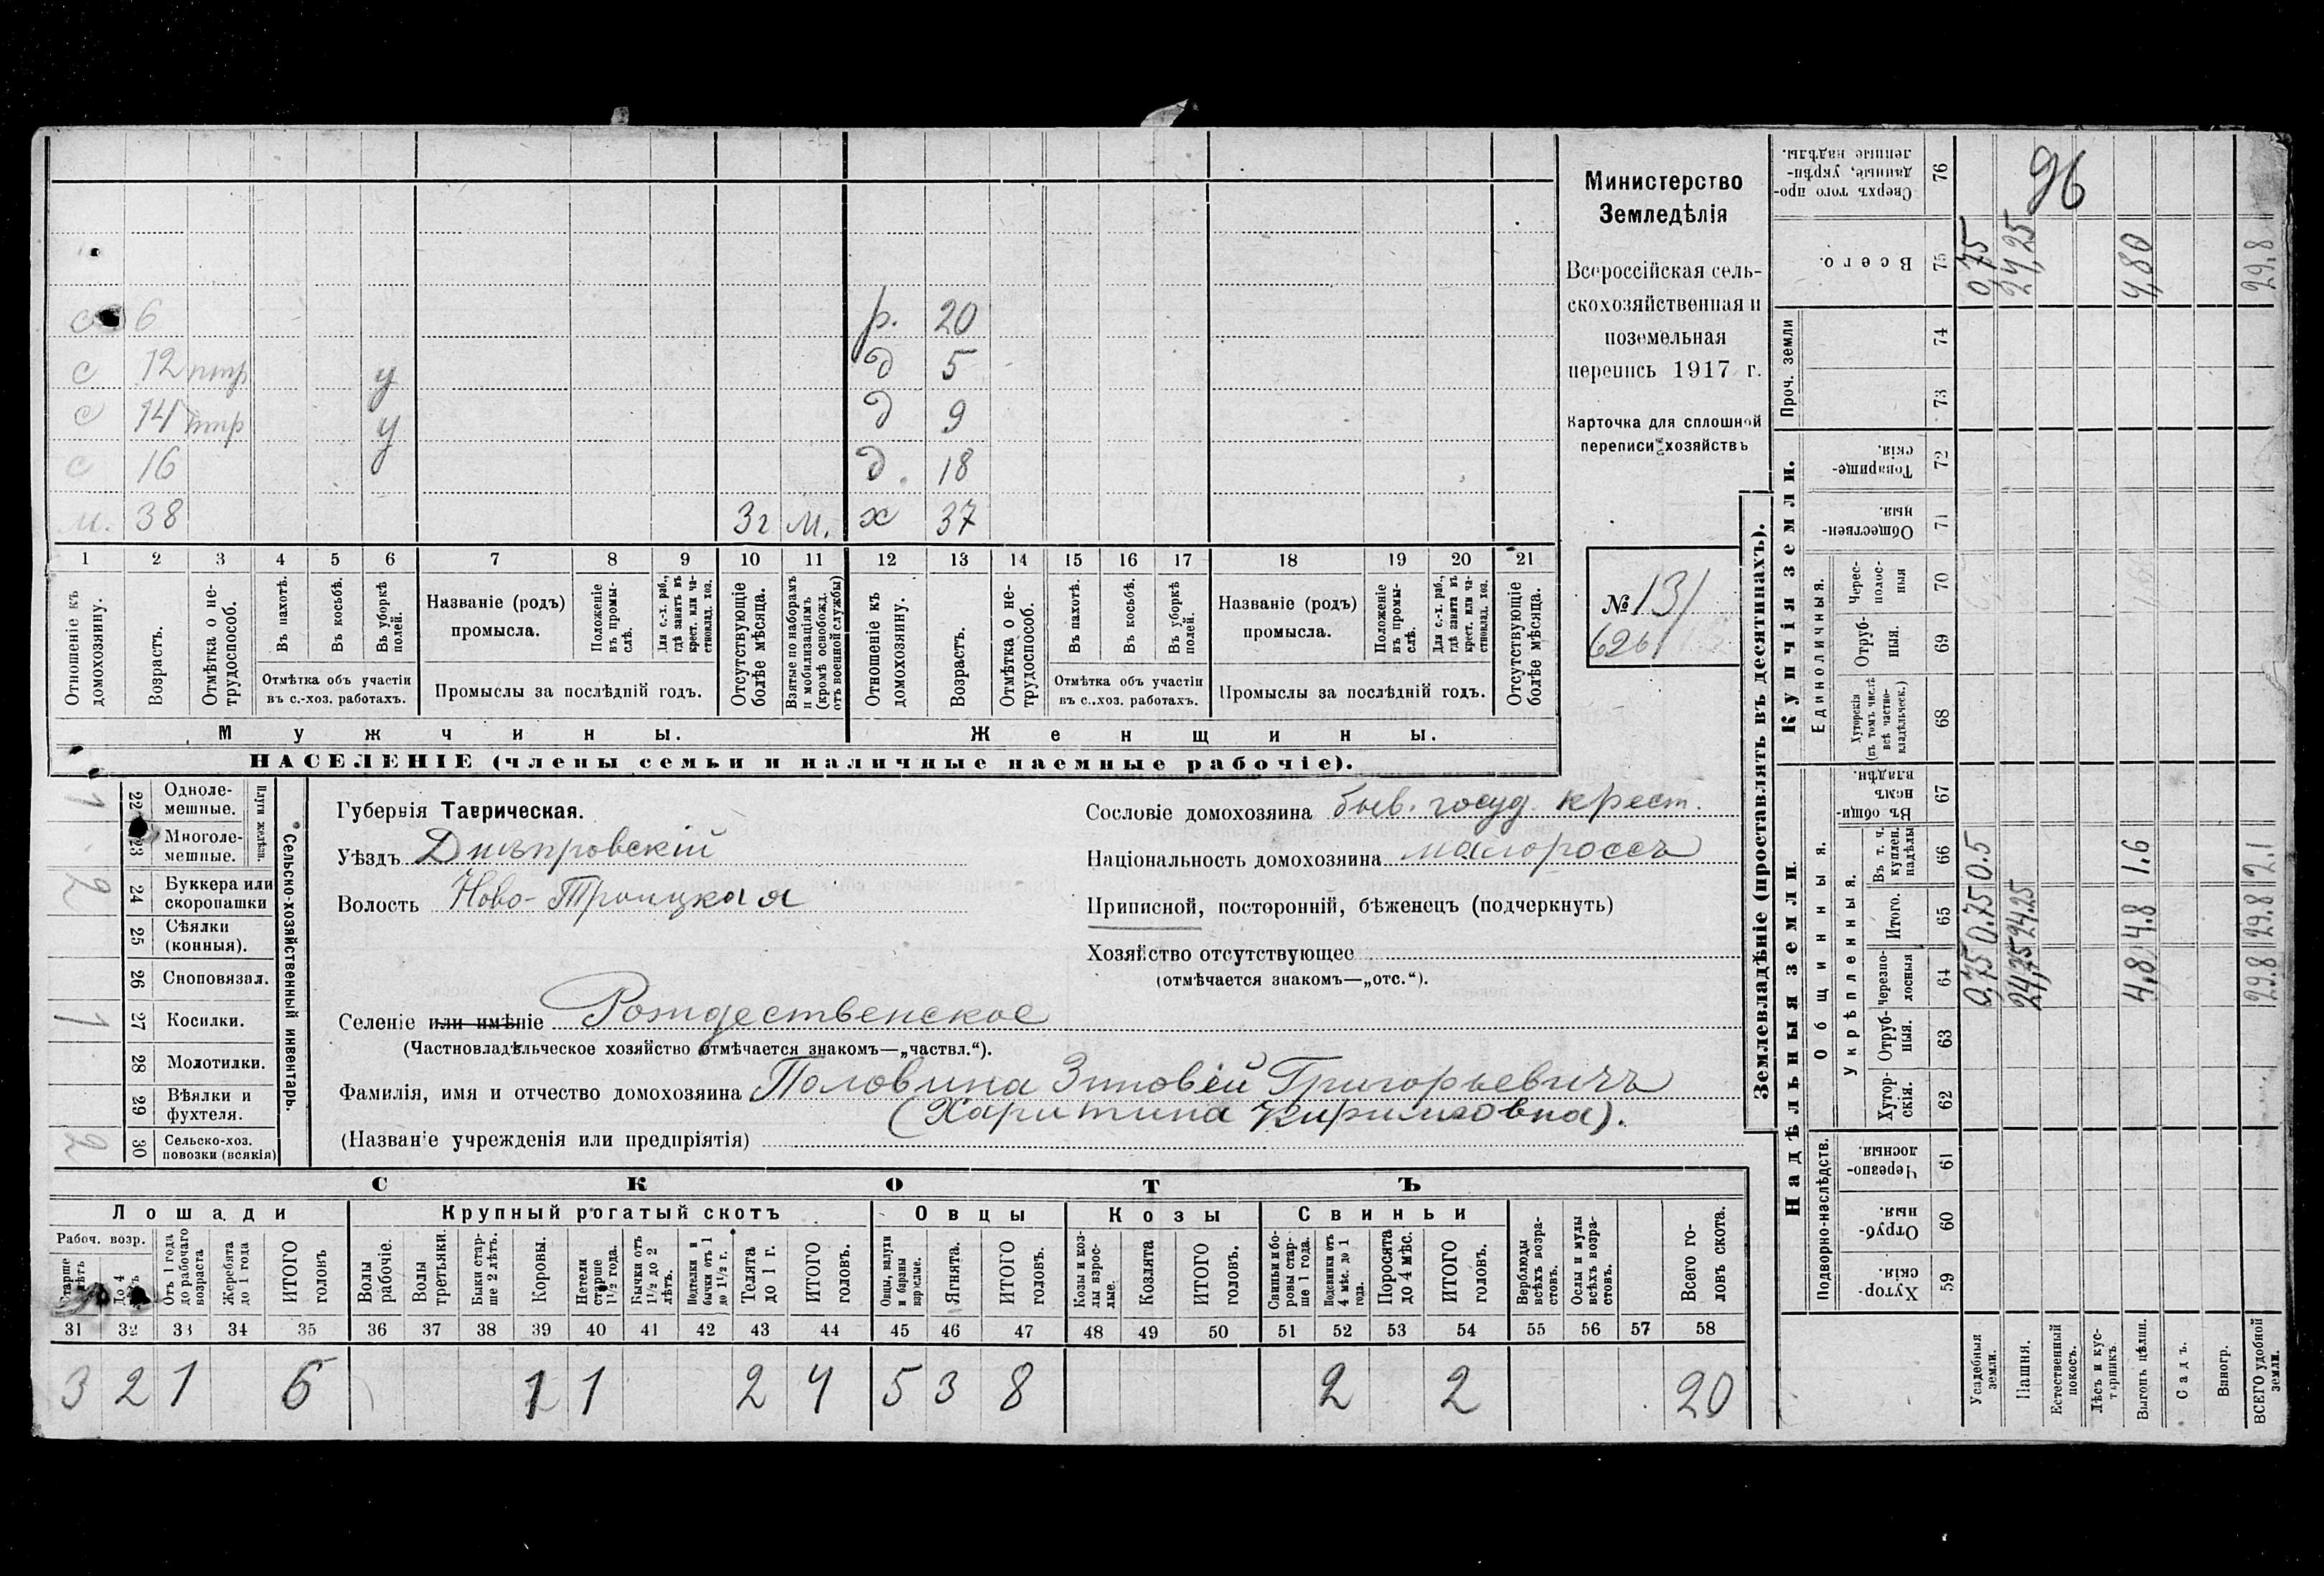 с 6 р. 20
с 12 нтр у д 5
с 14 нтр у д 9
с 16 д. 18
м. 38 3г м. х 37
1 2 3 4 5 6 7 8 9 10 11 12 13 14 15 16 17 18 19 20 21
Отношеніе къ домохозяину.
Возрастъ.
Отмѣтка о не-трудоспособ.
Въ пахотѣ.
Въ косьбѣ.
Въ уборкѣ полей.
Отмѣтка объ участіи
въ с.-хоз. работахъ.
Названіе (родъ)
промысла.
Положеніе въ промы-слѣ.
Для с.-х. раб., гдѣ занятъ въ крест. или ча-стновлад. хоз.
Промыслы за послѣдній годъ.
Отсутствующіе болѣе мѣсяца.
Взятые по наборамъ и мобилизаціямъ (кромѣ освобожд. отъ военной службы)
Отношеніе къ домохозяину.
Возрастъ.
Отмѣтка о не-трудоспособ.
Въ пахотѣ.
Въ косьбѣ.
Въ уборкѣ полей.
Отмѣтка объ участіи
въ с.-хоз. работахъ.
Названіе (родъ)
промысла.
Положеніе въ промы-слѣ.
Для с.-х. раб., гдѣ занята въ крест. или ча-стновлад. хоз.
Промыслы за послѣдній годъ.
Отсутствующіе болѣе мѣсяца.
Мужчины. Женщины.
НАСЕЛЕНІЕ (члены семьи и наличные наемные рабочіе).
Министерство
Земледѣлія
Всероссійская сель-
скохозяйственная и
поземельная
перепись 1917 г.
Карточка для сплошной
переписи хозяйствъ
№ 131
626
1 22 Одноле-мешные.
23 Многоле-мешные.
Плуги желѣзн.
2 24 Буккера или скоропашки
25 Сѣялки (конныя).
26 Сноповязал.
1 27 Косилки.
28 Молотилки.
29 Вѣялки и фухтеля.
2 30 Сельско-хоз. повозки (всякія)
Сельско-хозяйственный инвентарь.
Губернія Таврическая.
Уѣздъ Днѣпровскій
Волость Ново-Троицкая
Сословіе домохозяина быв. госуд. крест.
Національность домохозяина малороссъ
Приписной, посторонній, бѣженецъ (подчеркнуть)
Хозяйство отсутствующее
(отмѣчается знакомъ—„отс.“).
Селеніе или имѣніе Рождественское
(Частновладѣльческое хозяйство отмѣчается знакомъ—„частвл.“).
Фамилія, имя и отчество домохозяина Половина Зиновій Григорьевичъ
(Харитина Кириловна).
(Названіе учрежденія или предпріятія)
СКОТЪ
Лошади Крупный рогатый скотъ Овцы Козы Свиньи
Рабоч. возр.
Старше лѣтъ
До 4 лѣтъ
Отъ 1 года до рабочаго возраста
Жеребята до 1 года
ИТОГО головъ
Волы рабочіе.
Волы третьяки.
Быки стар-ше 2 лѣтъ.
Коровы.
Нетели старше 1½ года.
Бычки отъ 1½ до 2 лѣтъ.
Подтелки и бычки отъ 1 до 1½ г.
Телята до 1 г.
ИТОГО головъ.
Овцы, валухи и бараны взрослые.
Ягнята.
ИТОГО головъ.
Козы и коз-лы взрос-лые.
Козлята
ИТОГО головъ.
Свиньи и бо-ровы стар-ше 1 года.
Подсвинки отъ 4 мѣс. до 1 года.
Поросята до 4 мѣс.
ИТОГО головъ.
Верблюды всѣхъ возра-стовъ.
Ослы и мулы всѣхъ возра-стовъ.
Всего го-ловъ скота.
31 32 33 34 35 36 37 38 39 40 41 42 43 44 45 46 47 48 49 50 51 52 53 54 55 56 57 58
3 2 1 6 1 1 2 4 5 3 8 2 2 20
Землевладѣніе (проставлять въ десятинахъ).
Надѣльныя земли. Купчія земли. Проч. земли
Подворно-наслѣдств. Общинныя. Укрѣпленныя. Единоличныя.
Хутор-скія. 59
Отруб-ныя. 60
Черезпо-лосныя. 61
Хутор-скія. 62
Отруб-ныя. 63
Черезпо-лосныя 64
Итого. 65
Въ т. ч. куплен. надѣлы 66
Въ общин-немъ владѣн. 67
Хуторскія (въ томъ числѣ всѣ частно-владѣльческ.) 68
Отруб-ныя. 69
Черес-полос-ныя 70
Обществен-ныя. 71
Товарище-скія. 72
73
74
Всего. 75
Сверхъ того про-данные, укрѣп-ленные надѣлы. 76
96
Усадебныя земли. 0,75 0.75 0.5 0,75
Пашня. 24,25 24.25 24,25
Естественный покосъ.
Лѣсъ и кус-тарникъ.
Выгонъ цѣлин. 4,8 4.8 1.6 4,80
Садъ.
Виногр.
ВСЕГО удобной земли. 29.8 29.8 2.1 29.8